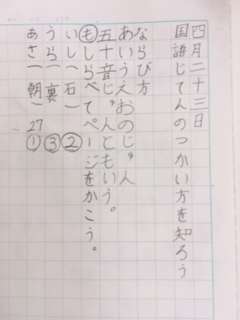 四月二十三日
国語じてんのつかい方を知ろう
ならび方
あいうえおのじゅん
五十音じゅんともいう。
もしらべてページをかこう。
いし(石) ②
うら(裏) ③
あさ(朝) 27 ①